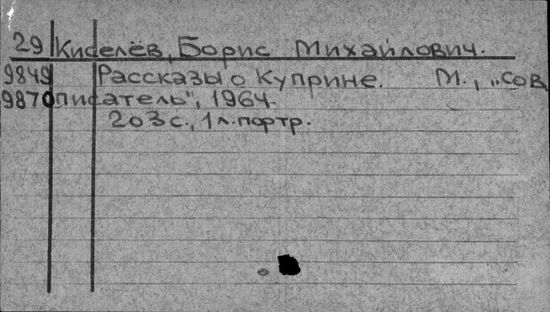 29 Киселёв, Борис Михайлович.
9849 Рассказы о Куприне. М., „сов
9870 писатель", 1964.
203 с., 1 л. портр.